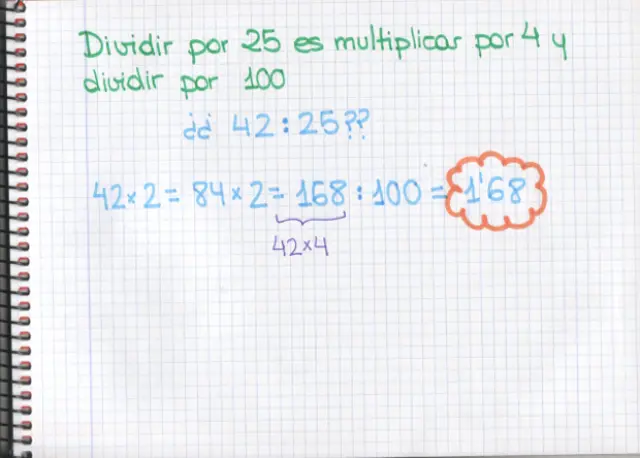 Dividir por 25 es multiplicar por 4 y
dividir por 100
¿¿ 42:25??
42×2=84×2=168:100=1'68
42×4